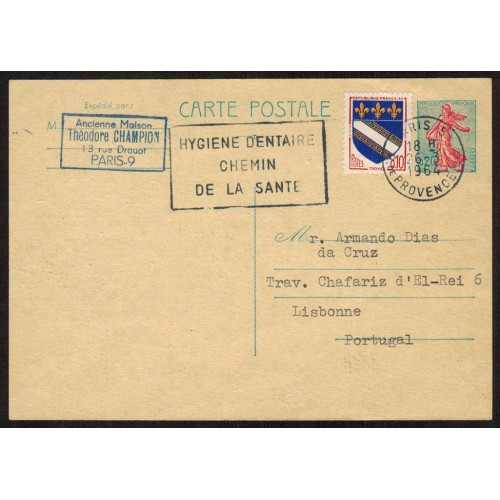 Expédié par:
CARTE POSTALE
M.
Ancienne Maison
Théodore CHAMPION
13 rue Drouot
PARIS-9
HYGIENE DENTAIRE
CHEMIN
DE LA SANTE
REPUBLIQUE FRANÇAISE
0,10
POSTES
TROYES
PARIS
18 H
1964
PROVENCE
M
Mr. Armando Dias
da Cruz
Trav. Chafariz d'El-Rei 6
Lisbonne
Portugal